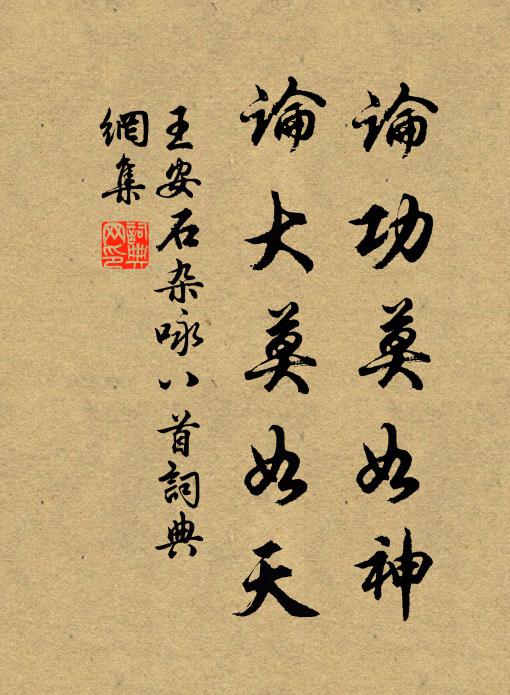 論功莫如神
論大莫如天
王安石杂咏八首詞典
網集
詞典
网印